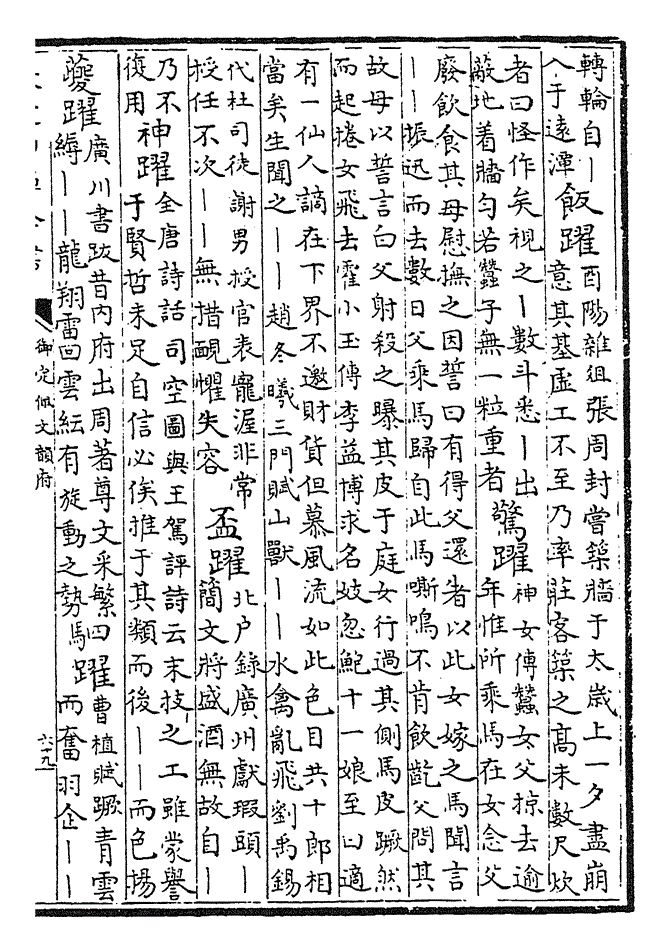 轉輪自｜
入于遠潭
飯躍
酉陽雜俎張周封嘗築牆于太歲上一夕盡崩
意其基虛工不至乃率莊客築之高未數尺炊
者曰怪作矣視之｜數斗悉｜出
蔽地着牆勻若蠶子無一粒重者
驚躍
神女傳蠶女父掠去逾
年惟所乘馬在女念父
廢飲食其母慰撫之因誓曰有得父還者以此女嫁之馬聞言
｜｜振迅而去數日父乘馬歸自此馬嘶鳴不肯飲齕父問其
故母以誓言白父射殺之曝其皮于庭女行過其側馬皮蹶然
而起捲女飛去霍小玉傳李益博求名妓忽鮑十一娘至曰適
有一仙人謫在下界不邀財貨但慕風流如此色目共十郎相
當矣生聞之｜｜趙冬曦三門賦山獸｜｜水禽亂飛劉禹錫
代杜司徒謝男授官表寵渥非常
授任不次｜｜無措靦懼失容
盃躍
北户錄廣州獻瑕頭｜
簡文將盛酒無故自｜
乃不
復用
神躍
全唐詩話司空圖與王駕評詩云末技之工雖蒙譽
于賢哲未足自信必俟推于其類而後｜｜而色揚
夔躍
廣川書跋昔内府出周著尊文采繁四
縟｜｜龍翔雷回雲紜有旋動之勢
馬躍
曹植賦蹶青雲
而奮羽企｜｜
御定佩文韻府
六十九